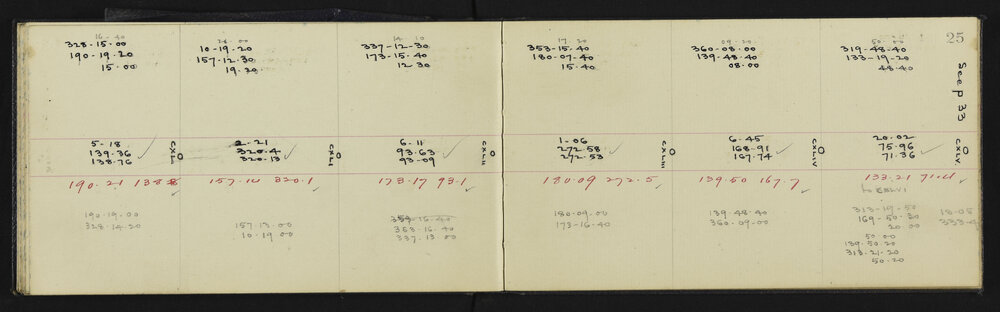 25
16-40
328-15-00
190-19-20
15-00
10-19-20
157-12-30
19-20
14-10
337-12-30
173-15-40
12 30
17 20
353-15-40
180-07-40
15-40
09-20
360-08-00
139-48-40
08-00
50-00
319-48-40
133-19-20
48-40
See p 33
5-18
139-36
138-76
CXL
2-21
320-4
320-13
CXLI
6-11
93-63
93-09
CXLII
1-06
272-58
272-53
CXLIII
6-45
168-91
167-74
CXLIV
20-02
75-96
71-36
CXLV
190-21 138-8
157-14 320-1
173-17 93-1
180-09 272-5
139-50 167-7
133-21 71-4
to CXLVI
190-19-00
328-14-20
157-13-00
10-19-00
353-16-40
353-16-40
337-13-00
180-09-00
173-16-40
139-48-40
360-09-00
313-19-50
169-50-20
20 00
50 00
139-50-20
313-21-20
50-20
18-05
333-4